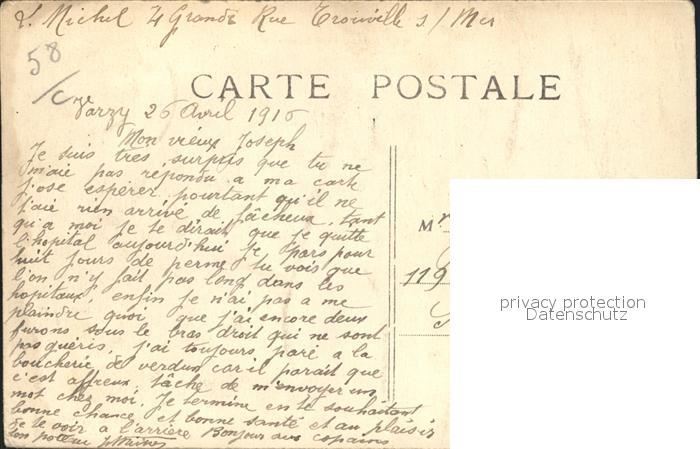 L. Michel 4 Grande Rue Trouville s/ Mer
58
CARTE POSTALE
Varzy 26 Avril 1916
Mon vieux Joseph
Je suis tres surpris que tu ne
m'aie pas répondu a ma carte
J'ose espérer pourtant qu'il ne
t'aie rien arrivé de fâcheux, tant
qu'a moi je te dirait que je quitte
l'hopital aujourd'hui je pars pour
huit jours de perme, tu vois que
l'on n'y fait pas long dans les
hopitaux, enfin je n'ai pas a me
plaindre quoi que j'ai encore deux
furons sous le bras droit qui ne sont
pas guéris, j'ai toujours paré a la
boucherie de verdun car il parait que
c'est affreux, tâche de m'envoyer un
mot chez moi. Je termine en te souhaitant
bonne chance et bonne santé et au plaisir
de te voir a l'arrière Bonjour aux copains
ton poteau
Mr
119
privacy protection
Datenschutz